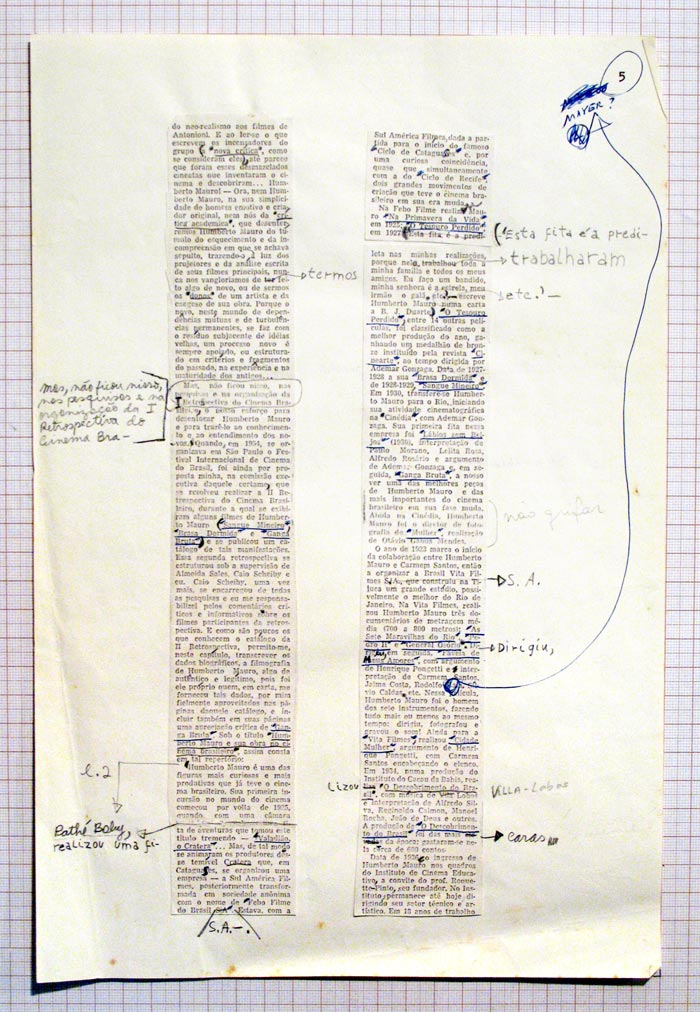 5
MAYER?
do neo-realismo aos filmes de
Antonioni. E ao ler-se o que
escrevem os incensadores do
grupo a "nova crítica", como
se consideram eles, até parece
que foram esses desmazelados
cineatas que inventaram o ci-
nema e descobriram... Hum-
berto Mauro! — Ora, nem Hum-
berto Mauro, na sua simplici-
dade do homem emotivo e cria-
dor original, nem nós da "crí-
tica academica", que desenter-
remos Humberto Mauro do tú-
mulo do esquecimento e da in-
compreensão em que se achava
sepulto, trazendo-o à luz dos
projetores e da análise escrita
de seus filmes principais, nun-
ca nos vangloriamos de ter fei-
to algo de novo, ou de sermos
os "donos" de um artista e da
exegese de sua obra. Porque o
novo, neste mundo de depen-
dências mútuas e de turbulên-
cias permanentes, se faz com
o resíduo subjacente de idéias
velhas, um processo novo é
sempre apoiado, ou estrutura-
do em critérios e fragmentos
do passado, na experiência e na
maturidade dos antigos...
termos
Mas, não ficou nisso,
nas pesquisas e na
organização da I
Retrospectiva do
Cinema Bra-
Mas, não ficou nisso, nas
pesquisas e na organização da
Retrospectiva do Cinema Bra-
sileiro, o nosso esforço para
desenfocar Humberto Mauro
e para trazê-lo ao conhecimen-
to e ao entendimento dos no-
vos. Quando, em 1954, se or-
ganizava em São Paulo o Fes-
tival Internacional de Cinema
do Brasil, foi ainda por pro-
posta minha, na comissão exe-
cutiva daquele certame, que
se resolveu realizar a II Re-
trospectiva do Cinema Brasi-
leiro, durante a qual se exibi-
ram alguns filmes de Humber-
to Mauro ("Sangue Mineiro",
"Brasa Dormida" e "Ganga
Bruta") e se publicou um ca-
tálogo de tais manifestações.
Essa segunda retrospectiva se
estruturou sob a supervisão de
Almeida Sales, Caio Scheiby e
eu. Caio Scheiby, uma vez
mais, se encarregou de todas
as pesquisas e eu me responsa-
bilizei pelos comentários crí-
ticos e informativos sobre os
filmes participantes da retros-
pectiva. E como são poucos os
que conhecem o catálogo da
II Retrospectiva, permito-me,
neste capítulo, transcrever os
dados biográficos, a filmografia
de Humberto Mauro, algo de
autêntico e legítimo, pois foi
ele próprio quem, em carta, me
forneceu tais dados, por mim
fielmente aproveitados nas pá-
ginas daquele catálogo, e in-
cluir também em suas páginas
uma apreciação crítica de "Gan-
ga Bruta". Sob o título "Hum-
berto Mauro e sua obra no ci-
nema brasileiro", assim consta
em tal repertório:
l.2
"Humberto Mauro é uma das
figuras mais curiosas e mais
produtivas que já teve o cine-
ma brasileiro. Sua primeira in-
cursão no mundo do cinema
começou por volta de 1925,
quando, com uma câmara
Pathé Baby,
realizou uma fi-
ta de aventuras que tomou este
título tremendo — "Valadião,
o Cratera"... Mas, de tal modo
se animaram os produtores des-
sa temível Cratera que, em
Cataguases, se organizou uma
empresa — a Sul América Fil-
mes, posteriormente transfor-
mada em sociedade anônima
com o nome de Febo Filme
do Brasil S.A. Estava, com a
S.A-.
Sul América Filmes, dada a par-
tida para o início do famoso
"Ciclo de Cataguases" e, por
uma curiosa coincidência,
quase que simultaneamente
com a do "Ciclo de Recife",
dois grandes movimentos de
criação que teve o cinema bra-
sileiro em sua era muda.
Na Febo Filme realiza Mau-
ro "Na Primavera da Vida"
em 1926; "O Tesouro Perdido"
em 1927 "Esta fita é a predi-
("Esta fita é a predi-
leta nas minhas realizações,
porque nela trabalhou toda a
minha família e todos os meus
amigos. Eu faço um bandido,
minha senhora é a estrela, meu
irmão o galã, etc." — escreve
Humberto Mauro numa carta
a B. J. Duarte). "O Tesouro
Perdido", entre 14 outras pelí-
culas, foi classificado como a
melhor produção do ano, ga-
nhando um medalhão de bronze
instituído pela revista "Ci-
nearte", ao tempo dirigida por
Ademar Gonzaga. Data de 1927-
1928 a sua "Brasa Dormida" e
de 1928-1929, "Sangue Mineiro".
Em 1930, transfere-se Humber-
to Mauro para o Rio, iniciando
sua atividade cinematográfica
na "Cinédia", com Ademar Gon-
zaga. Sua primeira fita nessa
empresa foi "Lábios sem Bei-
jos" (1930), interpretação de
Paulo Morano, Lelita Rosa,
Alfredo Rosário e argumento
de Ademar Gonzaga e, em se-
guida, "Ganga Bruta", a nosso
ver uma das melhores peças
de Humberto Mauro e das
mais importantes do cinema
brasileiro em sua fase muda.
Ainda na Cinédia, Humberto
Mauro foi o diretor de foto-
grafia de "Mulher", realização
de Otávio Gabus Mendes.
trabalharam
etc.' —
não grifar
O ano de 1933 marca o início
da colaboração entre Humberto
Mauro e Carmem Santos, então
a organizar a Brasil Vita Fil-
mes S/A, que construiu na Ti-
juca um grande estúdio, possi-
velmente o melhor do Rio de
Janeiro. Na Vita Filmes, reali-
zou Humberto Mauro três do-
cumentários de metragem mé-
dia (700 a 800 metros): "As
Sete Maravilhas do Rio",
e "General Osório".
em seguida, "Favela de
Meus Amores", com argumento
de Henrique Pongetti e inter-
pretação de Carmem Santos,
Jaime Costa, Rodolfo
vio Caldas, etc. Nessa película,
Humberto Mauro foi o homem
dos sete instrumentos, fazendo
tudo mais ou menos ao mesmo
tempo: dirigiu, fotografou e
gravou o som! Ainda para a
Vita Filmes, realizou "Cidade
Mulher", argumento de Henri-
que Pongetti, com Carmem
Santos encabeçando o elenco.
Em 1934, numa produção do
Instituto do Cacau da Bahia, rea-
S. A.
Dirigiu,
lizou
"O Descobrimento do Bra-
sil", com música de Vila Lobos
e interpretação de Alfredo Sil-
va, Reginaldo Calmon, Manoel
Rocha, João de Deus e outros.
A produção de "O Descobrimen-
to do Brasil" foi das mais
da época: gastaram-se ne-
la cerca de 600 contos.
VILLA-Lobos
caras
Data de 1936 o ingresso de
Humberto Mauro nos quadros
do Instituto de Cinema Educa-
tivo, a convite do prof. Roque-
tte-Pinto, seu fundador. No Ins-
tituto permanece até hoje di-
rigindo seu setor técnico e ar-
tístico. Em 18 anos de trabalho